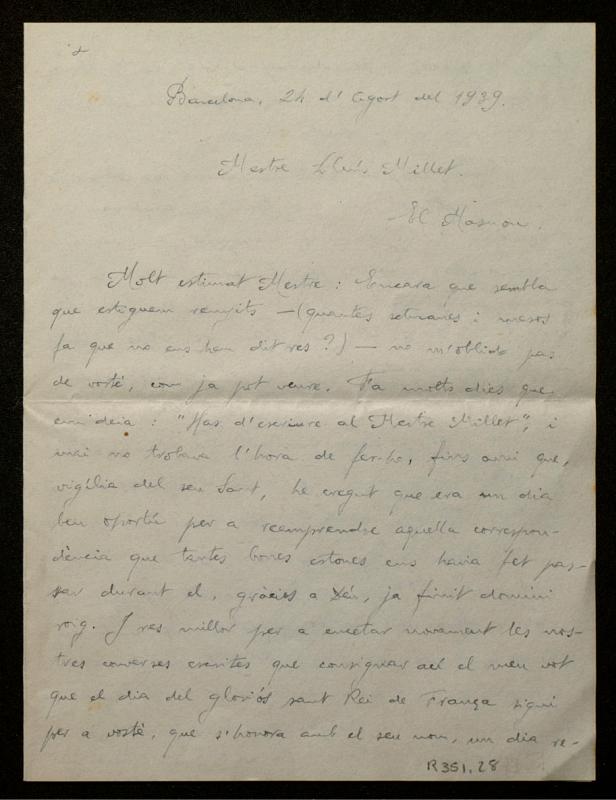 Barcelona, 24 d'Agost del 1939.
Mestre Lluís Millet.
El Masnou.
Molt estimat Mestre: Encara que sembla
que estiguem renyits —(quantes setmanes i mesos
fa que no ens hem dit res?)— no m'oblido pas
de vostè, com ja pot veure. Fa molts dies que
em deia: "Has d'escriure al Mestre Millet", i
mai no trobava l'hora de fer-ho, fins avui que,
vigília del seu Sant, he cregut que era un dia
ben oportú per a reemprendre aquella correspon-
dència que tantes bones estones ens havia fet pas-
sar durant el, gràcies a Déu, ja finit domini
roig. I res millor per a encetar novament les nos-
tres converses escrites que consignar ací el meu vot
que el dia del gloriós sant Rei de França sigui
per a vostè, que s'honora amb el seu nom, un dia re-
R351,28